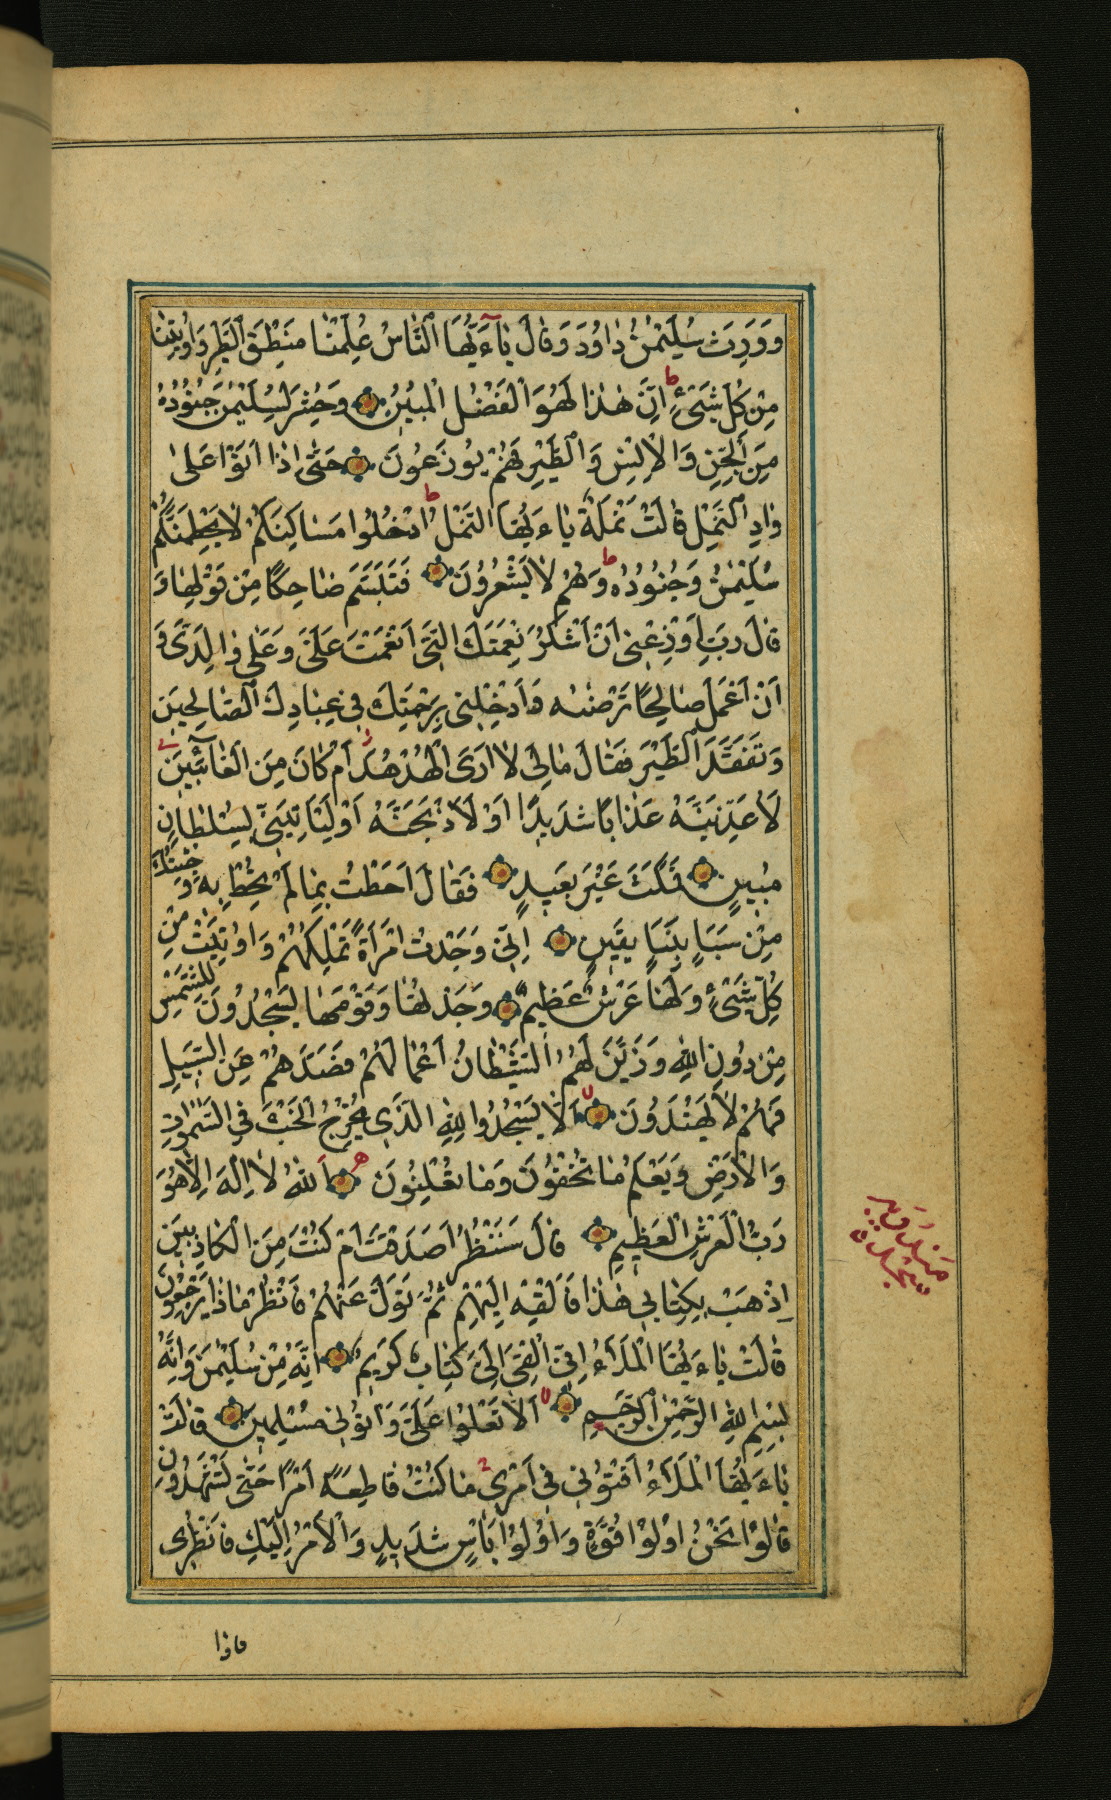 وَوَرِثَ سُلَيْمٰنُ دٰاوُدَ وَقٰالَ يٰآءَيُّهَا ٱلنّٰاسُ عُلِّمْنٰا مَنْطِقَ ٱلطَّيْرِ وَاُوتِينٰا
مِنْ كُلِّ شَيْءٍ ط اِنَّ هٰذٰا لَهُوَ الْفَضْلُ الْمُبِينُ وَحُشِرَ لِسُلَيْمٰنَ جُنُودُهُ
مِنَ ٱلْجِنِّ وَالْاِنْسِ وَٱلطَّيْرِ فَهُمْ يُوزَعُونَ حَتّٰى اِذٰا اَتَوْا عَلىٰ
وٰادِ ٱلنَّمْلِ قٰالَتْ نَمْلَةٌ يٰاءَيُّهَا النَّمْلُ ط ادْخُلُوا مَسٰاكِنَكُمْ لٰا يَحْطِمَنَّكُمْ
سُلَيْمٰنُ وَجُنُودُهُ ط وَهُمْ لٰا يَشْعُرُونَ فَتَبَسَّمَ ضٰاحِكًا مِنْ قَوْلِهٰا وَ
قٰالَ رَبِّ اَوْزِعْنِي اَنْ اَشْكُرَ نِعْمَتَكَ الَّتِي اَنْعَمْتَ عَلَيَّ وَعَلىٰ وٰالِدَيَّ وَ
اَنْ اَعْمَلَ صٰالِحًا تَرْضٰيهُ وَاَدْخِلْنِي بِرَحْمَتِكَ فِي عِبٰادِكَ ٱلصّٰالِحِينَ
وَتَفَقَّدَ ٱلطَّيْرَ فَقٰالَ مٰا لِيَ لٰا اَرَى الْهُدْهُدَ اَمْ كٰانَ مِنَ الْغٰآئِبِينَ
لَاُعَذِّبَنَّهُ عَذٰابًا شَدِيدًا اَوْ لَاَذْبَحَنَّهُ اَوْ لَيَأْتِيَنِّي بِسُلْطٰانٍ
مُبِينٍ فَمَكَثَ غَيْرَ بَعِيدٍ فَقٰالَ اَحَطْتُ بِمٰا لَمْ تُحِطْ بِهِ وَجِئْتُكَ
مِنْ سَبَاٍ بِنَبَاٍ يَقِينٍ اِنِّي وَجَدْتُ امْرَاَةً تَمْلِكُهُمْ وَاُوتِيَتْ مِنْ
كُلِّ شَيْءٍ وَلَهٰا عَرْشٌ عَظِيمٌ وَجَدْتُهٰا وَقَوْمَهٰا يَسْجُدُونَ لِلشَّمْسِ
مِنْ دُونِ اللّٰهِ وَزَيَّنَ لَهُمُ الشَّيْطٰانُ اَعْمٰالَهُمْ فَصَدَّهُمْ عَنِ السَّبِيلِ
فَهُمْ لٰا يَهْتَدُونَ اَلّٰا يَسْجُدُوا لِلّٰهِ الَّذِي يُخْرِجُ الْخَبْءَ فِي السَّمٰوٰاتِ
وَالْاَرْضِ وَيَعْلَمُ مٰا تُخْفُونَ وَمٰا تُعْلِنُونَ اَللّٰهُ لٰا اِلٰهَ اِلّٰا هُوَ
رَبُّ الْعَرْشِ الْعَظِيمِ قٰالَ سَنَنْظُرُ اَصَدَقْتَ اَمْ كُنْتَ مِنَ الْكٰاذِبِينَ
اِذْهَبْ بِكِتٰابِي هٰذٰا فَاَلْقِهْ اِلَيْهِمْ ثُمَّ تَوَلَّ عَنْهُمْ فَانْظُرْ مٰاذٰا يَرْجِعُونَ
قٰالَتْ يٰاءَيُّهَا الْمَلَاُ اِنِّي اُلْقِيَ اِلَيَّ كِتٰابٌ كَرِيمٌ اِنَّهُ مِنْ سُلَيْمٰنَ وَاِنَّهُ
بِسْمِ اللّٰهِ الرَّحْمٰنِ ٱلرَّحِيمِ اَلّٰا تَعْلُوا عَلَيَّ وَاْتُونِي مُسْلِمِينَ قٰالَتْ
يٰاءَيُّهَا الْمَلَاُ اَفْتُونِي فِي اَمْرِي مٰا كُنْتُ قٰاطِعَةً اَمْرًا حَتّٰى تَشْهَدُونِ
قٰالُوا نَحْنُ اُولُوا قُوَّةٍ وَاُولُوا بَأْسٍ شَدِيدٍ وَالْاَمْرُ اِلَيْكِ فَانْظُرِي
ماذا